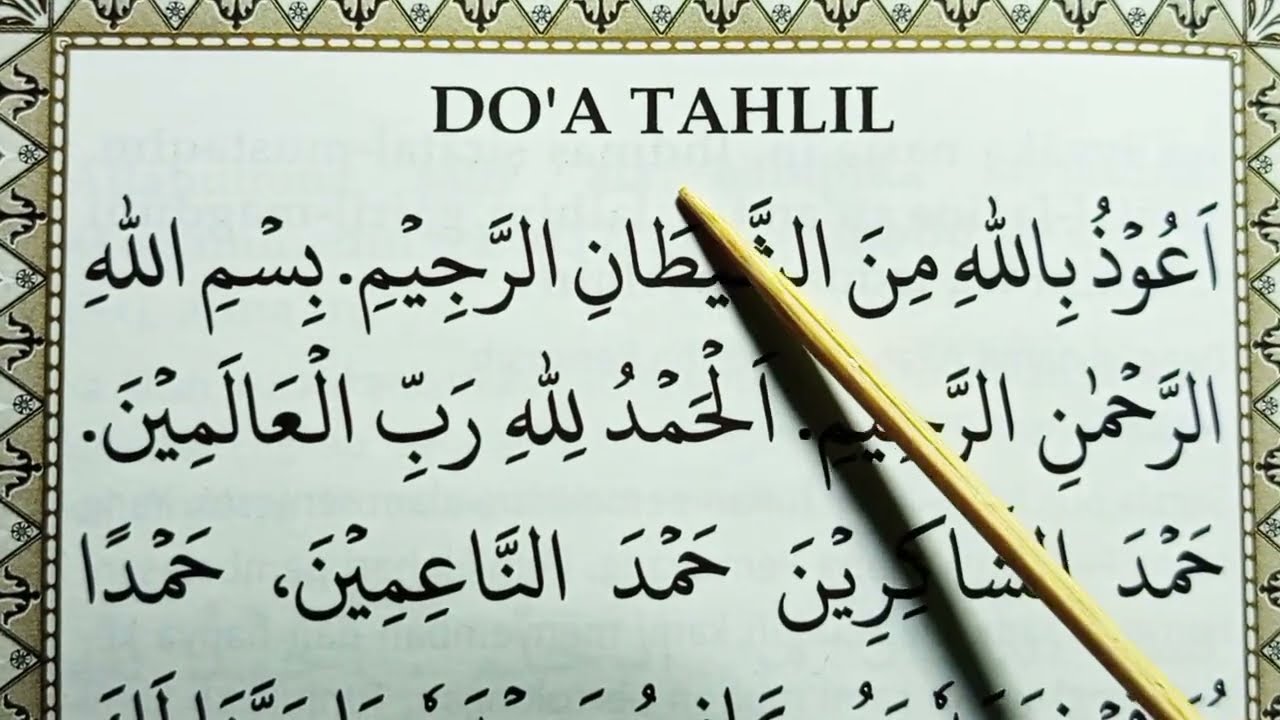 DO'A TAHLIL
اَعُوْذُ بِاللهِ مِنَ الشَّيْطَانِ الرَّجِيْمِ. بِسْمِ اللهِ
الرَّحْمٰنِ الرَّحِيْمِ. اَلْحَمْدُ لِلّٰهِ رَبِّ الْعَالَمِيْنَ.
حَمْدَ الشَّاكِرِيْنَ حَمْدَ النَّاعِمِيْنَ، حَمْدًا